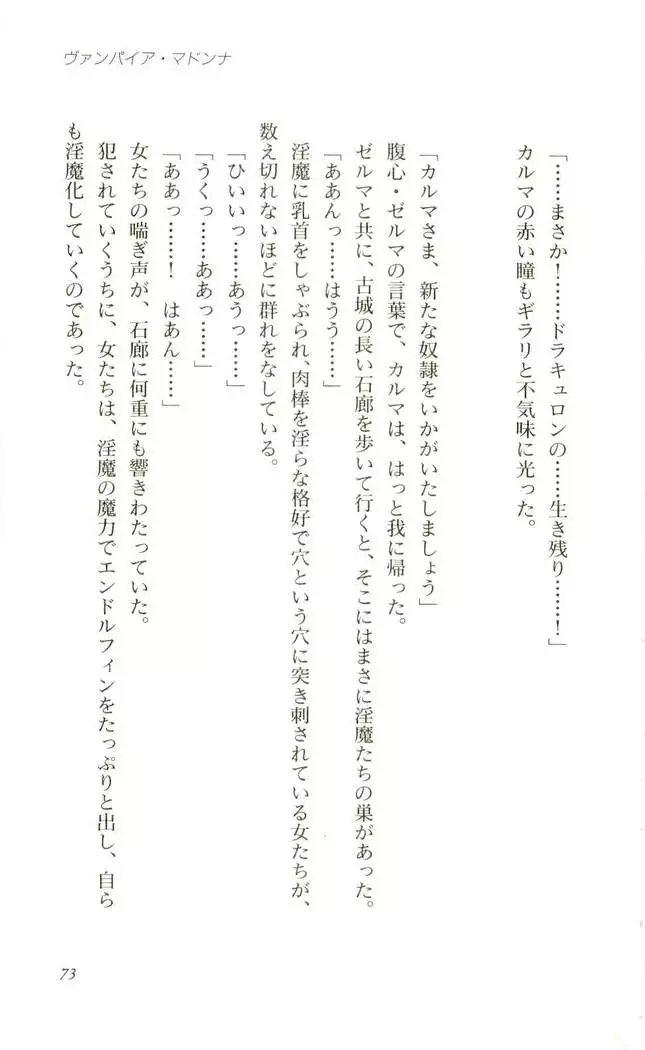 ヴァンパイア・マドンナ
「……まさか！………ドラキュロンの……生き残り………！」
カルマの赤い瞳もギラリと不気味に光った。
「カルマさま、新たな奴隷をいかがいたしましょう」
腹心・ゼルマの言葉で、カルマは、はっと我に帰った。
ゼルマと共に、古城の長い石廊を歩いて行くと、そこにはまさに淫魔たちの巣があった。
「ああんっ……はうう……」
淫魔に乳首をしゃぶられ、肉棒を淫らな格好で穴という穴に突き刺されている女たちが、
数え切れないほどに群れをなしている。
「ひいいっ……あうっ……」
「うくっ……ああっ……」
「ああっ………！　はあん……」
女たちの喘ぎ声が、石廊に何重にも響きわたっていた。
犯されていくうちに、女たちは、淫魔の魔力でエンドルフィンをたっぷりと出し、自ら
も淫魔化していくのであった。
73